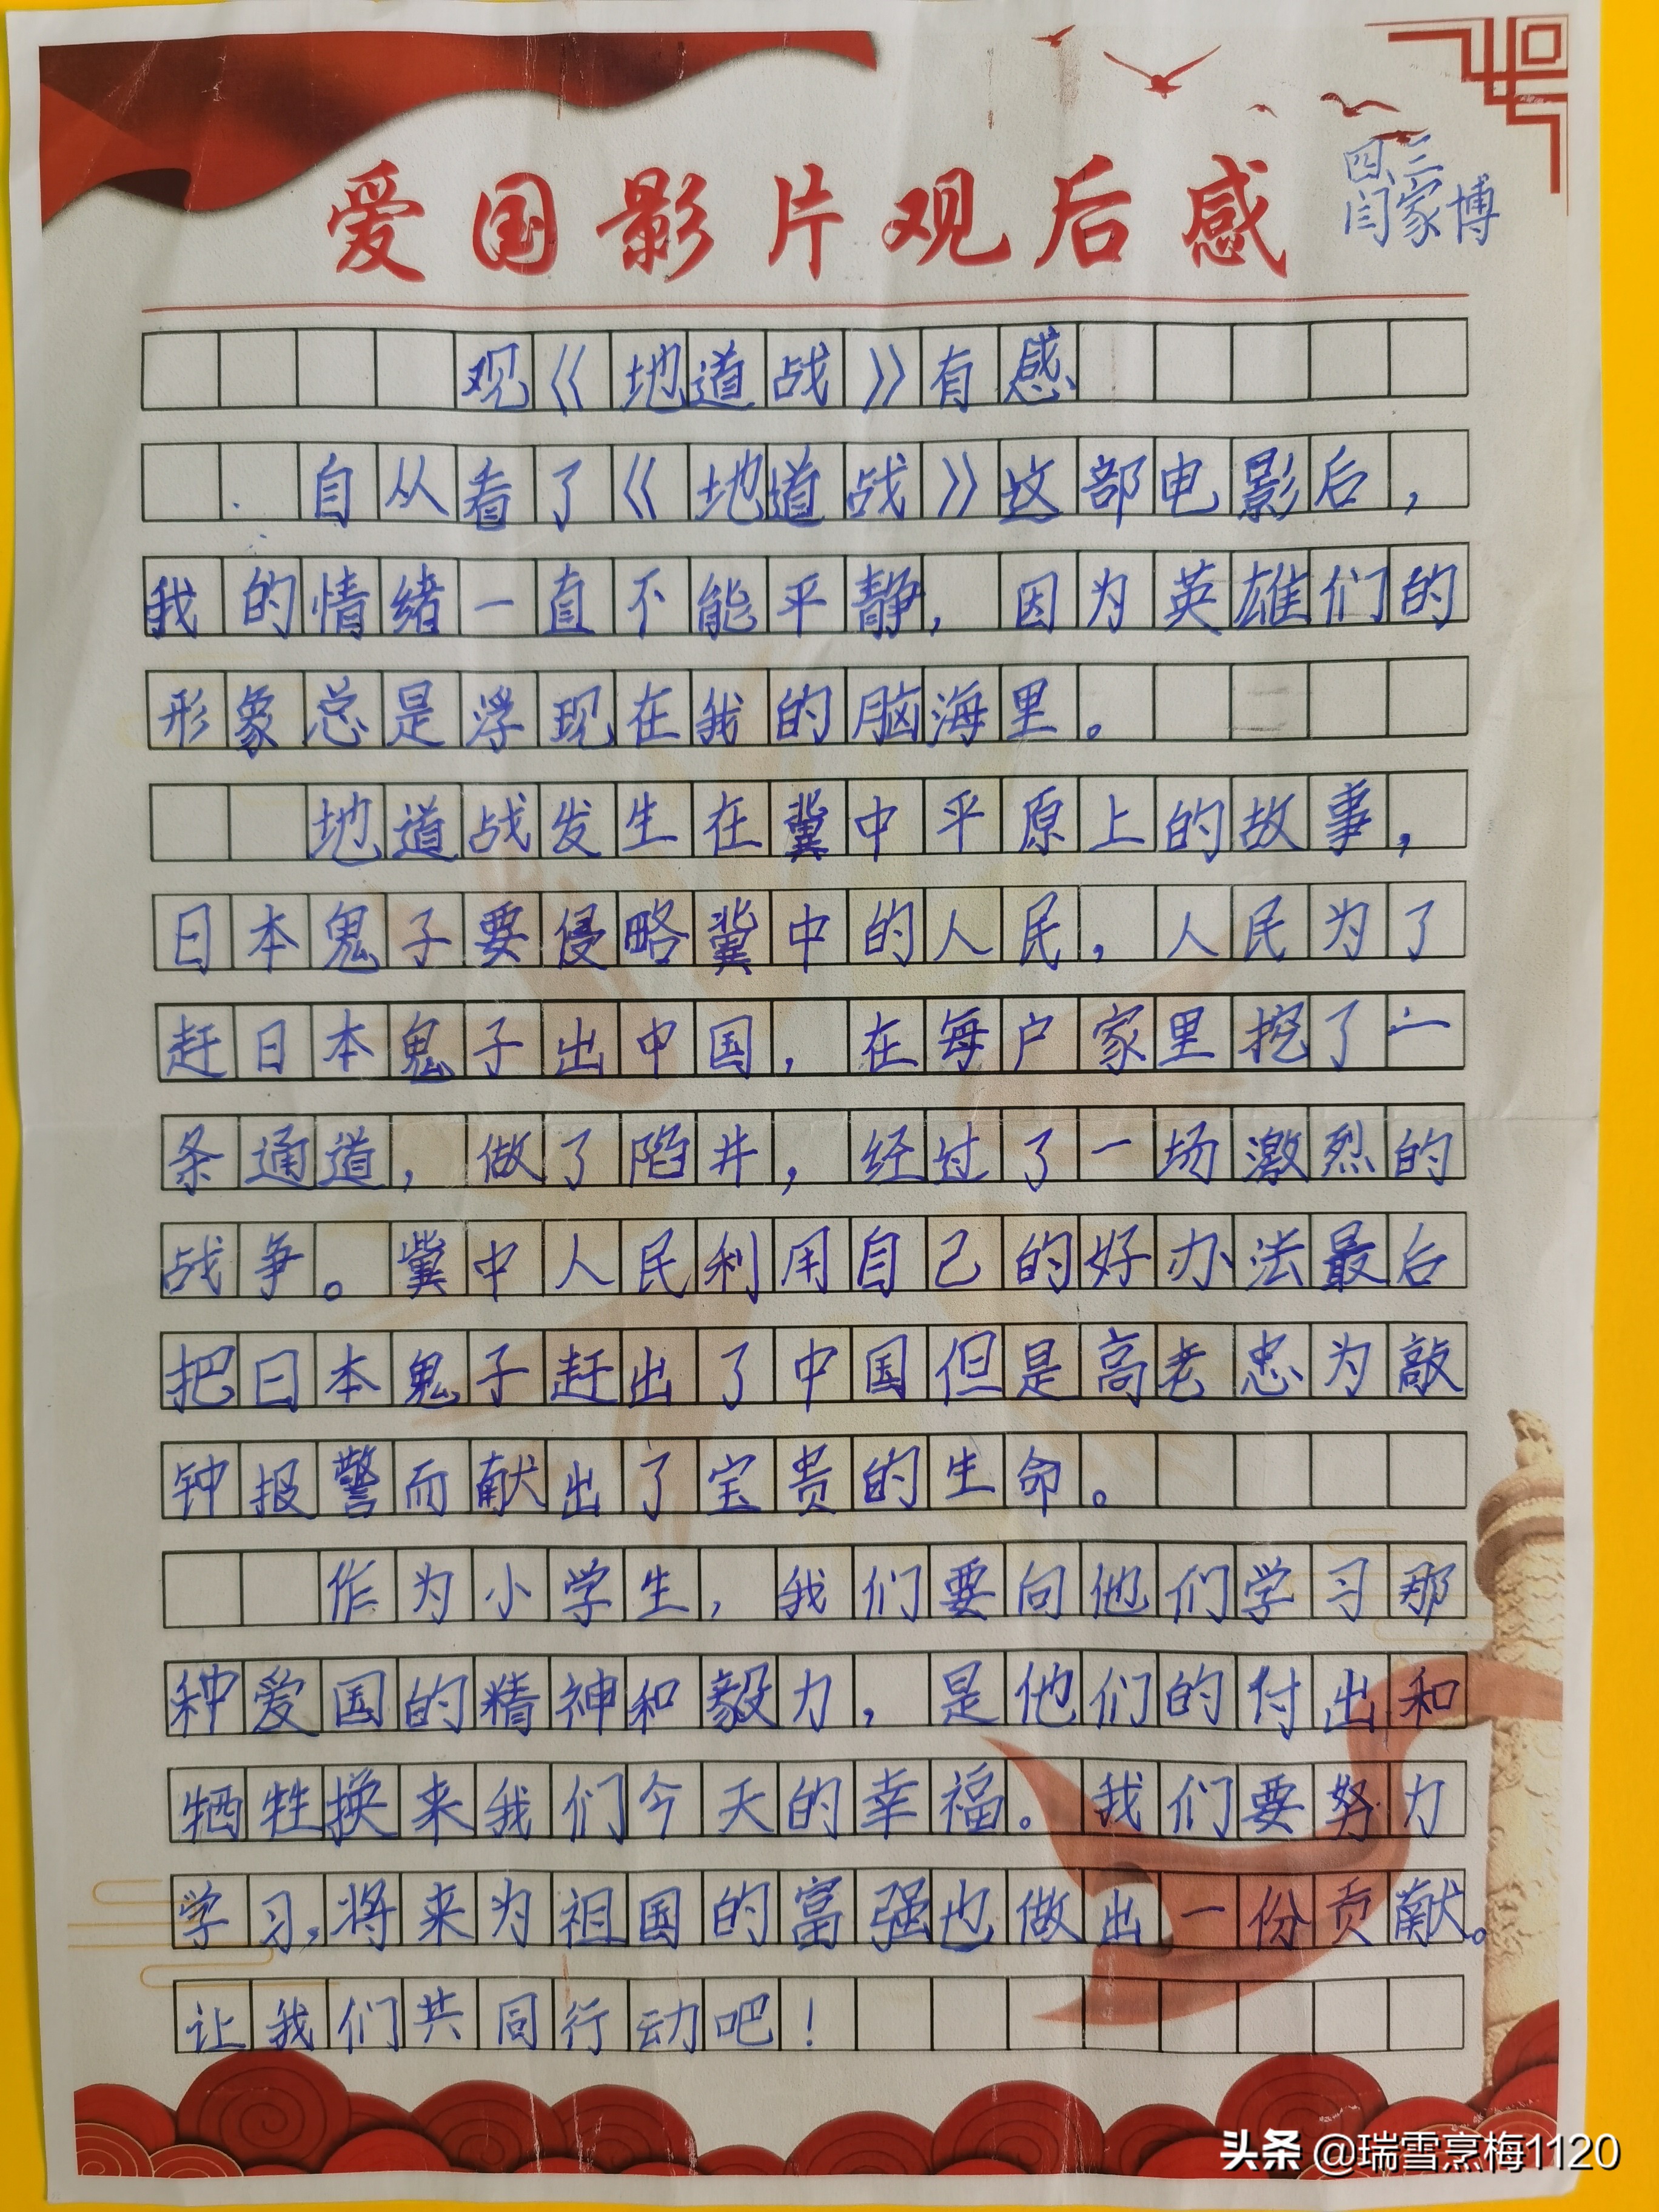 爱国影片观后感
四、三
闫家博
观《地道战》有感
自从看了《地道战》这部电影后，
我的情绪一直不能平静，因为英雄们的
形象总是浮现在我的脑海里。
地道战发生在冀中平原上的故事，
日本鬼子要侵略冀中的人民，人民为了
赶日本鬼子出中国，在每户家里挖了一
条通道，做了陷井，经过了一场激烈的
战争。冀中人民利用自己的好办法最后
把日本鬼子赶出了中国但是高老忠为敲
钟报警而献出了宝贵的生命。
作为小学生，我们要向他们学习那
种爱国的精神和毅力，是他们的付出和
牺牲换来我们今天的幸福。我们要努力
学习，将来为祖国的富强也做出一份贡献。
让我们共同行动吧！
头条 @瑞雪烹梅1120